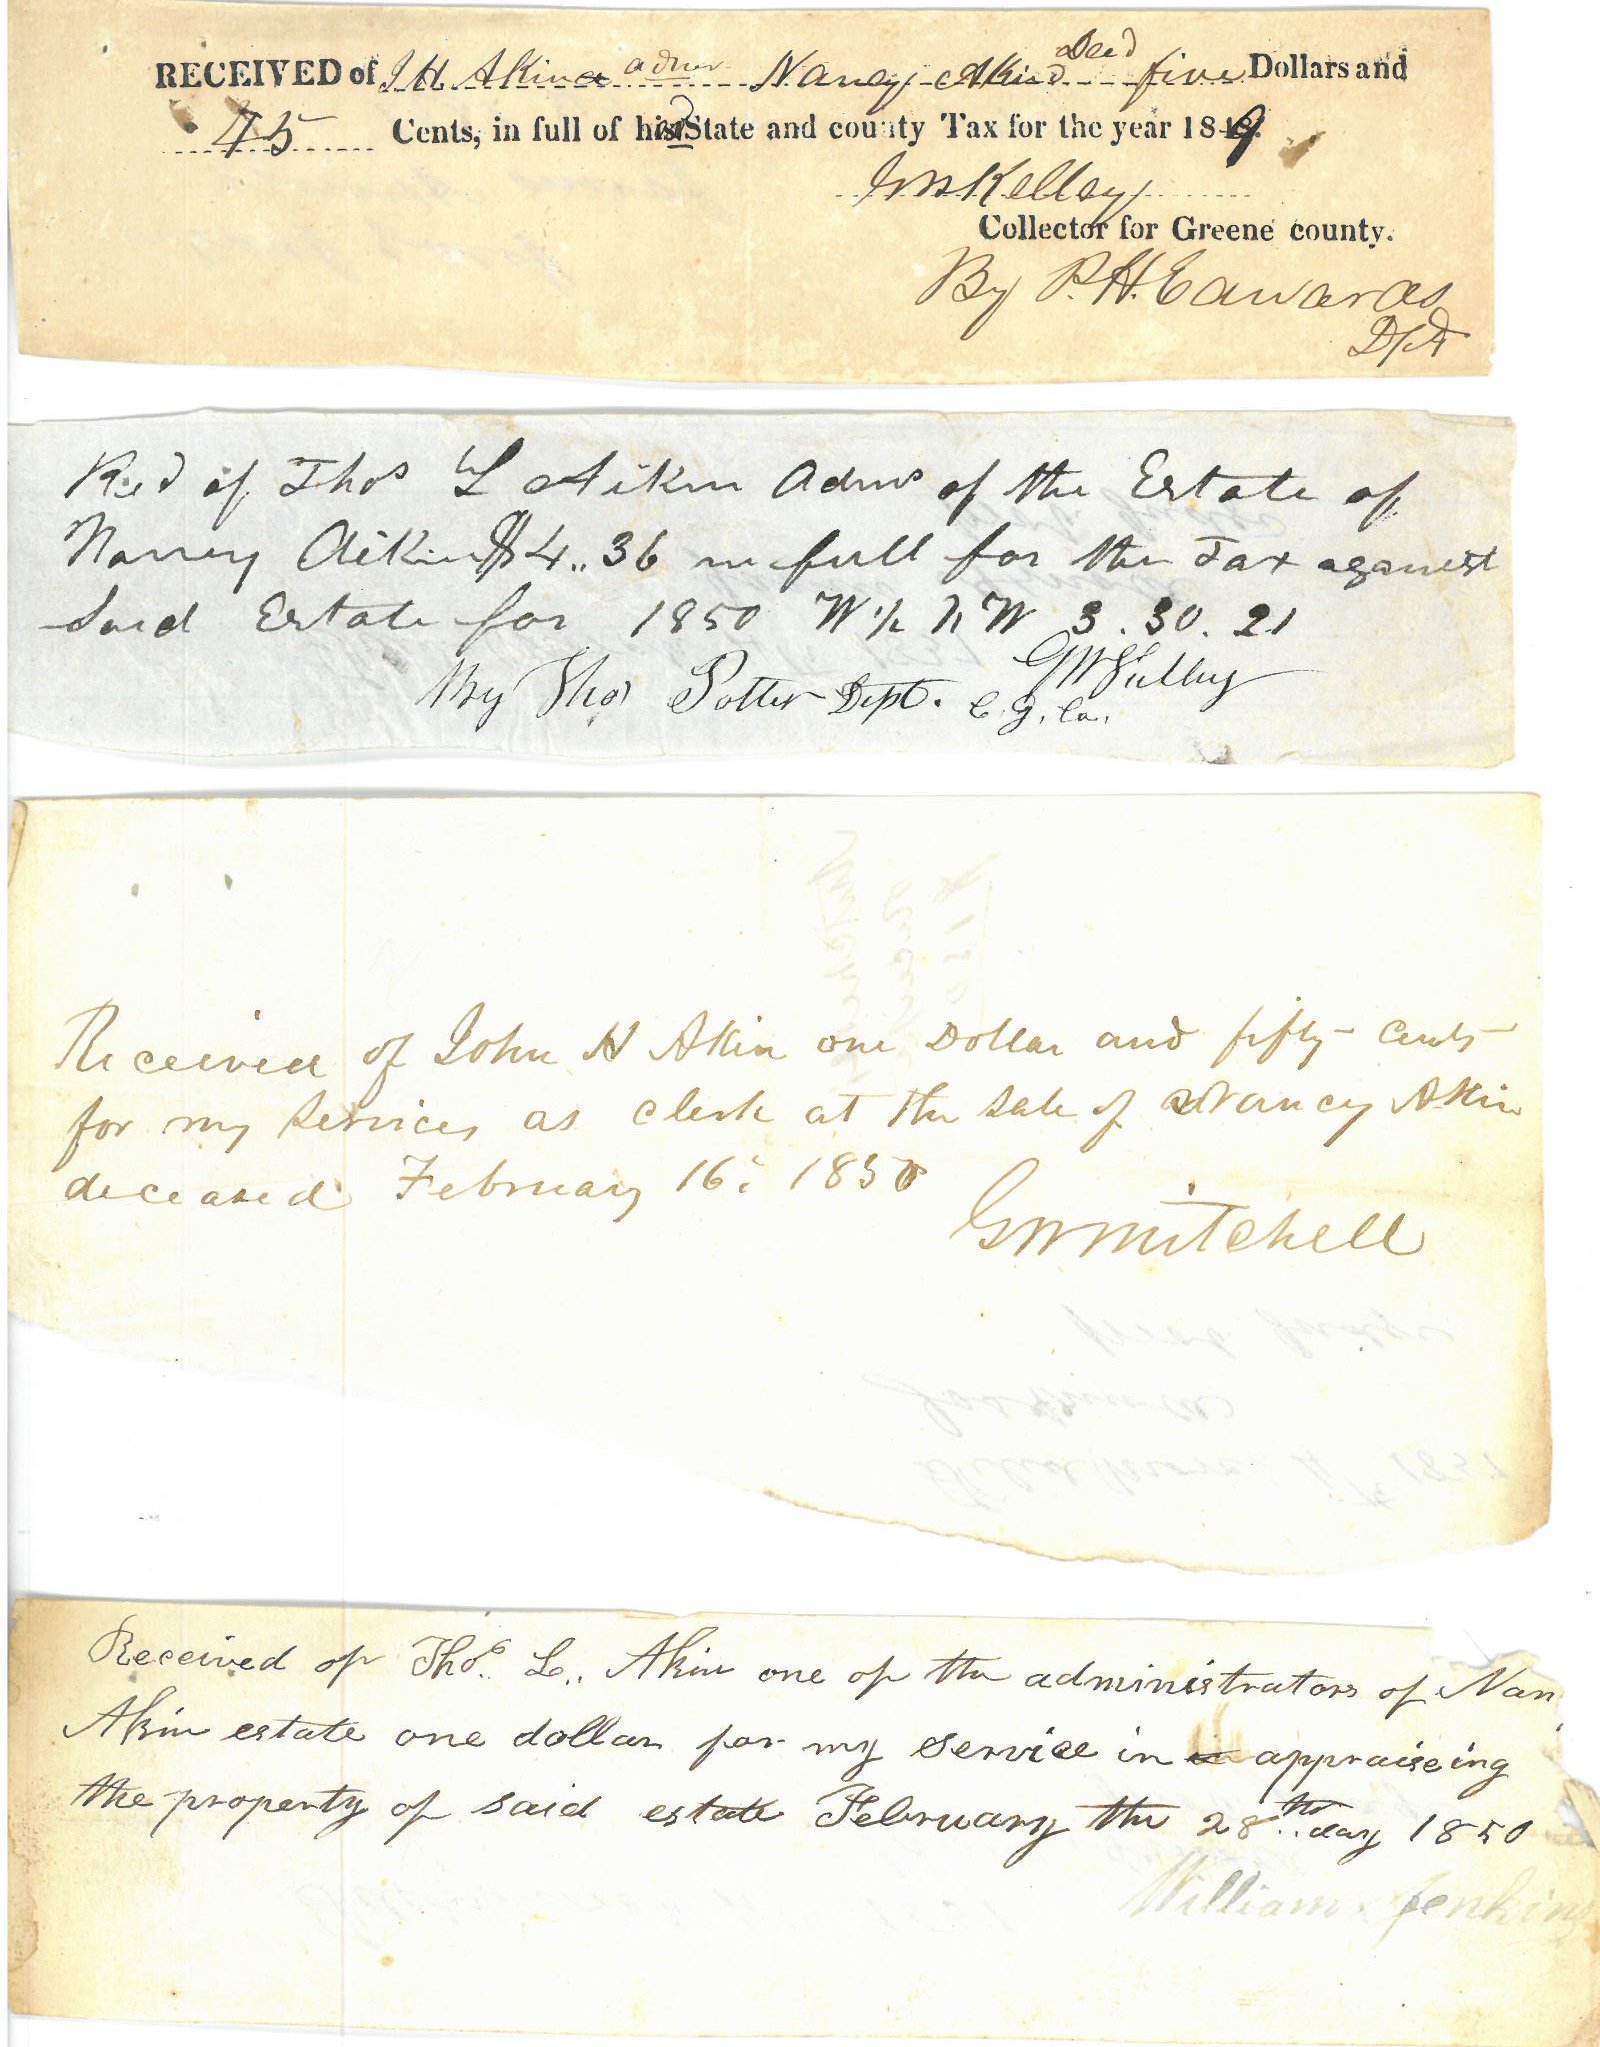 RECEIVED of J H Akin admr Nancy Akin Decd five Dollars and
45 Cents, in full of his State and county Tax for the year 1849.
Kelley
Collector for Greene county.
By P. H. Edwards
Dpt
Recd of Thos L Aikin Admr of the Estate of
Nancy Aikin $4..36 in full for the Tax against
Said Estate for 1850 W 1/2 N W 3. 30. 21
By Thos Potter Dept. C. G. Co.
Received of John H Akin one Dollar and fifty Cents
for my Services as Clerk at the Sale of Nancy Akin
deceased February 16: 1850
GW Mitchell
Received of Thos. L.. Akin one of the administrators of Nan
Akin estate one dollar for my service in in appraiseing
the property of said estate February the 28th.. day 1850
William Jenkins